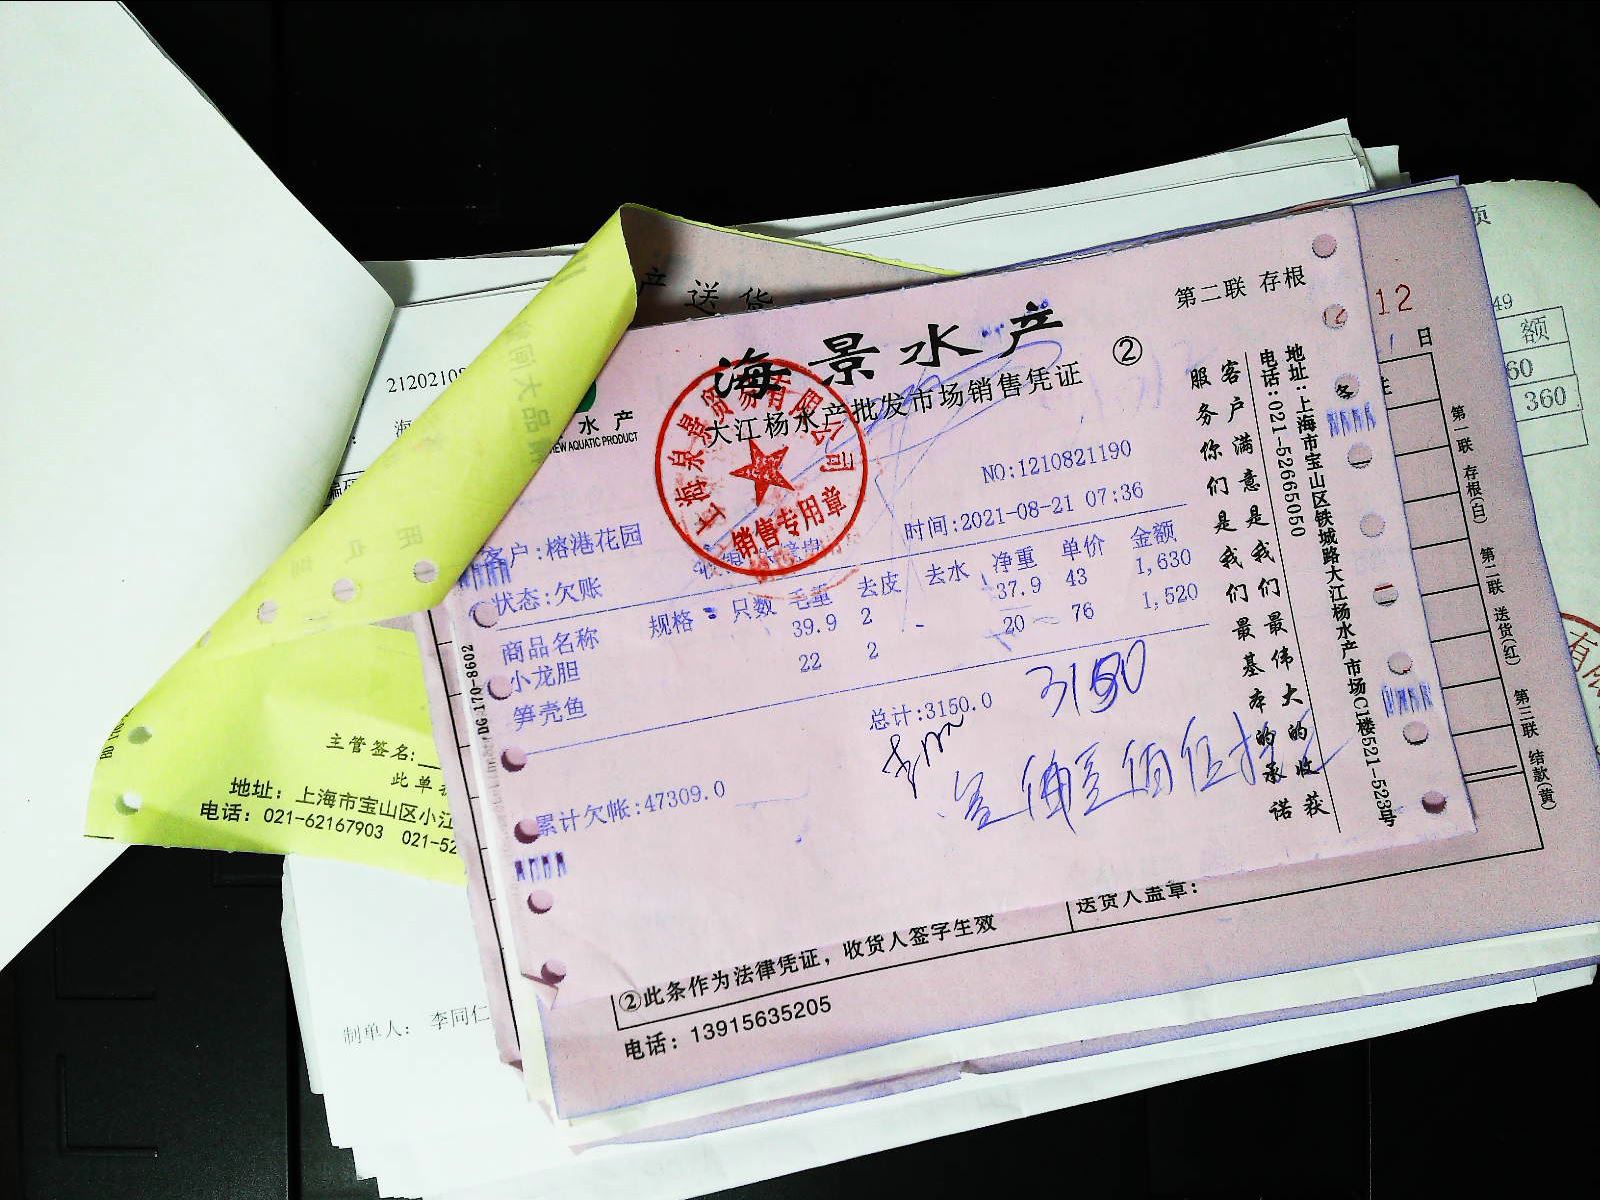 第二联 存根
海景水产
②
大江杨水产批发市场销售凭证
上海泉景贸易有限公司
销售专用章
NO:1210821190
客户:榕港花园
时间:2021-08-21 07:36
状态:欠账
商品名称 规格 只数 毛重 去皮 去水 净重 单价 金额
小龙胆 39.9 2 37.9 43 1,630
笋壳鱼 22 2 20 76 1,520
总计:3150.0
3150
累计欠帐:47309.0
客户满意是我们最伟大的收获
服务你们是我们最基本的承诺
地址:上海市宝山区铁城路大江杨水产市场C1楼521-523号
电话:021-52665050
DG 170-8602
送货人盖章:
②此条作为法律凭证,收货人签字生效
电话:13915635205
12
日
第一联 存根(白)
第二联 送货(红)
第三联 结款(黄)
产送货
水产
NEW AQUATIC PRODUCT
主管签名:
此单
地址:上海市宝山区小江
电话:021-62167903 021-52
制单人: 李同仁
页
49
额
60
360